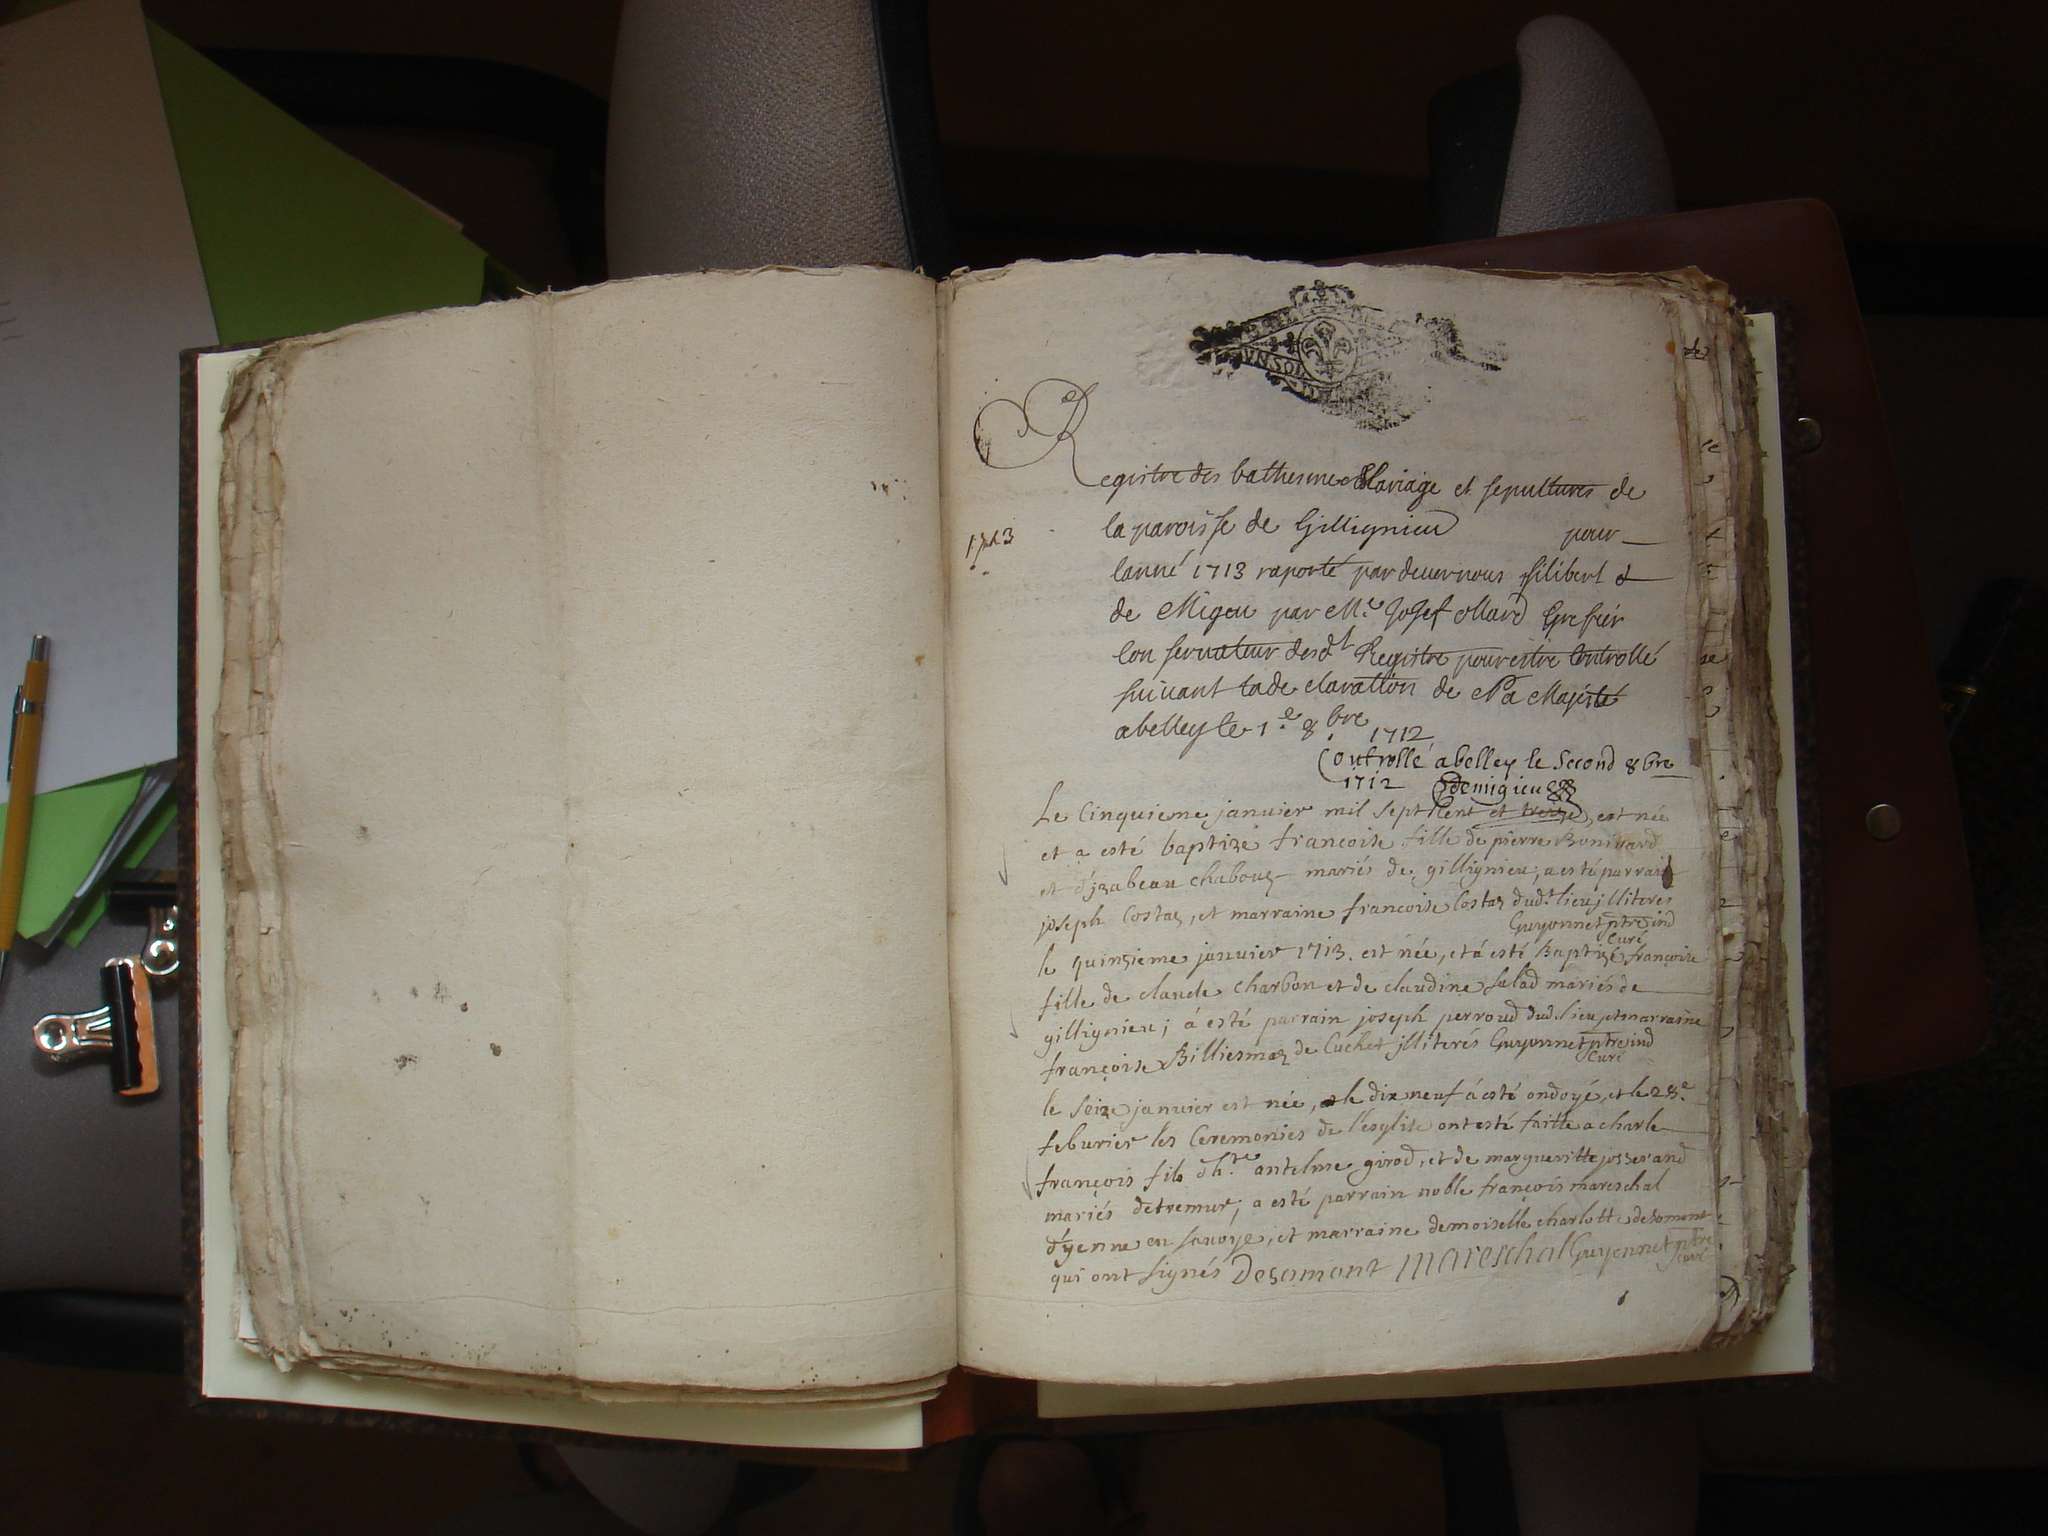 UN SOL
Registre des bathesme Mariage et sepultures de
1713
la paroisse de Gillignieu pour
lanné 1713 raporté par deuer nous filibert
de Migeu par Me Josef Mard Grefier
Conseruateur desdt Registre pour estre Controllé
suiuant la declaration de Sa Majesté
a belley le 1e 8bre 1712
Controllé a belley le second 8bre
1712 Demigieu
Le Cinquieme januier mil sept Cent et treize, est née
et a esté baptizé francoise fille de pierre Boniuard
et d'jzabeau chabouz mariés de gillignieu, a esté parrain
joseph Costaz, et marraine francoise Costaz dudt lieu jlliteres
Guyonnet ptre ind
Curé
le quinzieme januier 1713. est née, et á esté Baptizé françoise
fille de claude Charbon et de claudine salad mariés de
gillignieu; á esté parrain joseph perroud dud. lieu et marraine
françoise Billiemaz de Cuchet jlliterés Guyonnet ptre ind
Curé
le seize januier est née, et le dix neuf á esté ondoyé, et le 28e
feburier les Ceremonies de l'esglise ont esté faitte a charle
françois fils d'h.te antelme girod, et de margueritte josserand
mariés de tremur; a esté parrain noble françois mareschal
d'yenne en sauoye, et marraine demoiselle charlotte desamont
qui ont signés Desamont Mareschal Guyonnet ptre
curé